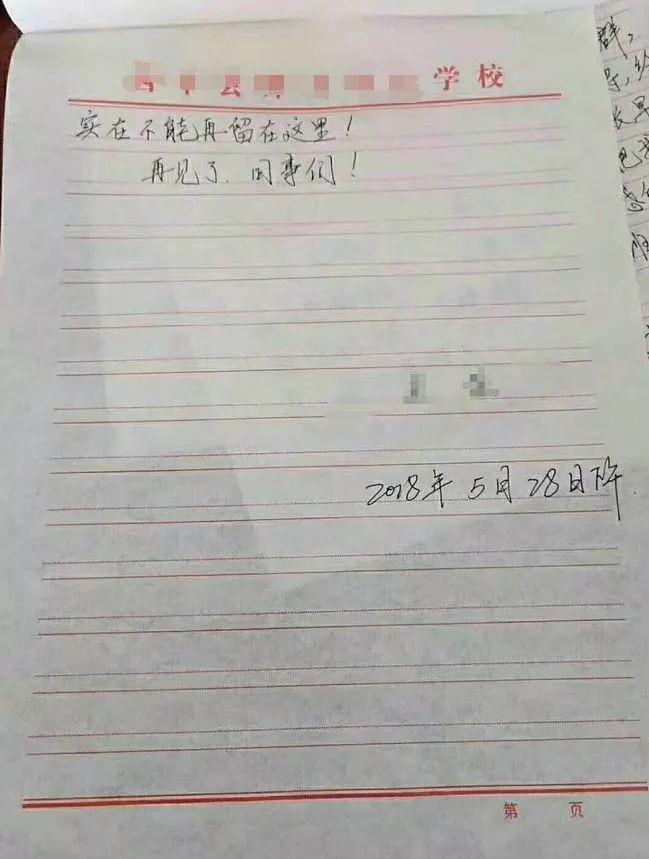 学校
实在不能再留在这里！
再见了．同事们！
2018年 5月 28日下午．
第 页